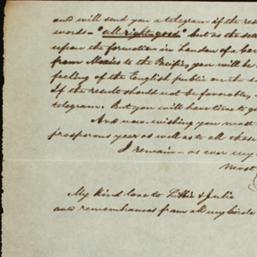 and will send you a telegram if the res
words - "all right gosh" but as the se
upon the formation in London of a Com
from Mexico to the Pacific, you will be
feeling of the English public on the s
If the result should not be favorable,
telegram. But you will have time to g
And now wishing you most
prosperous years as well as to all those
I remain - as ever my
most
My kind love to Lillie & Julie
and remembrances from all my birds